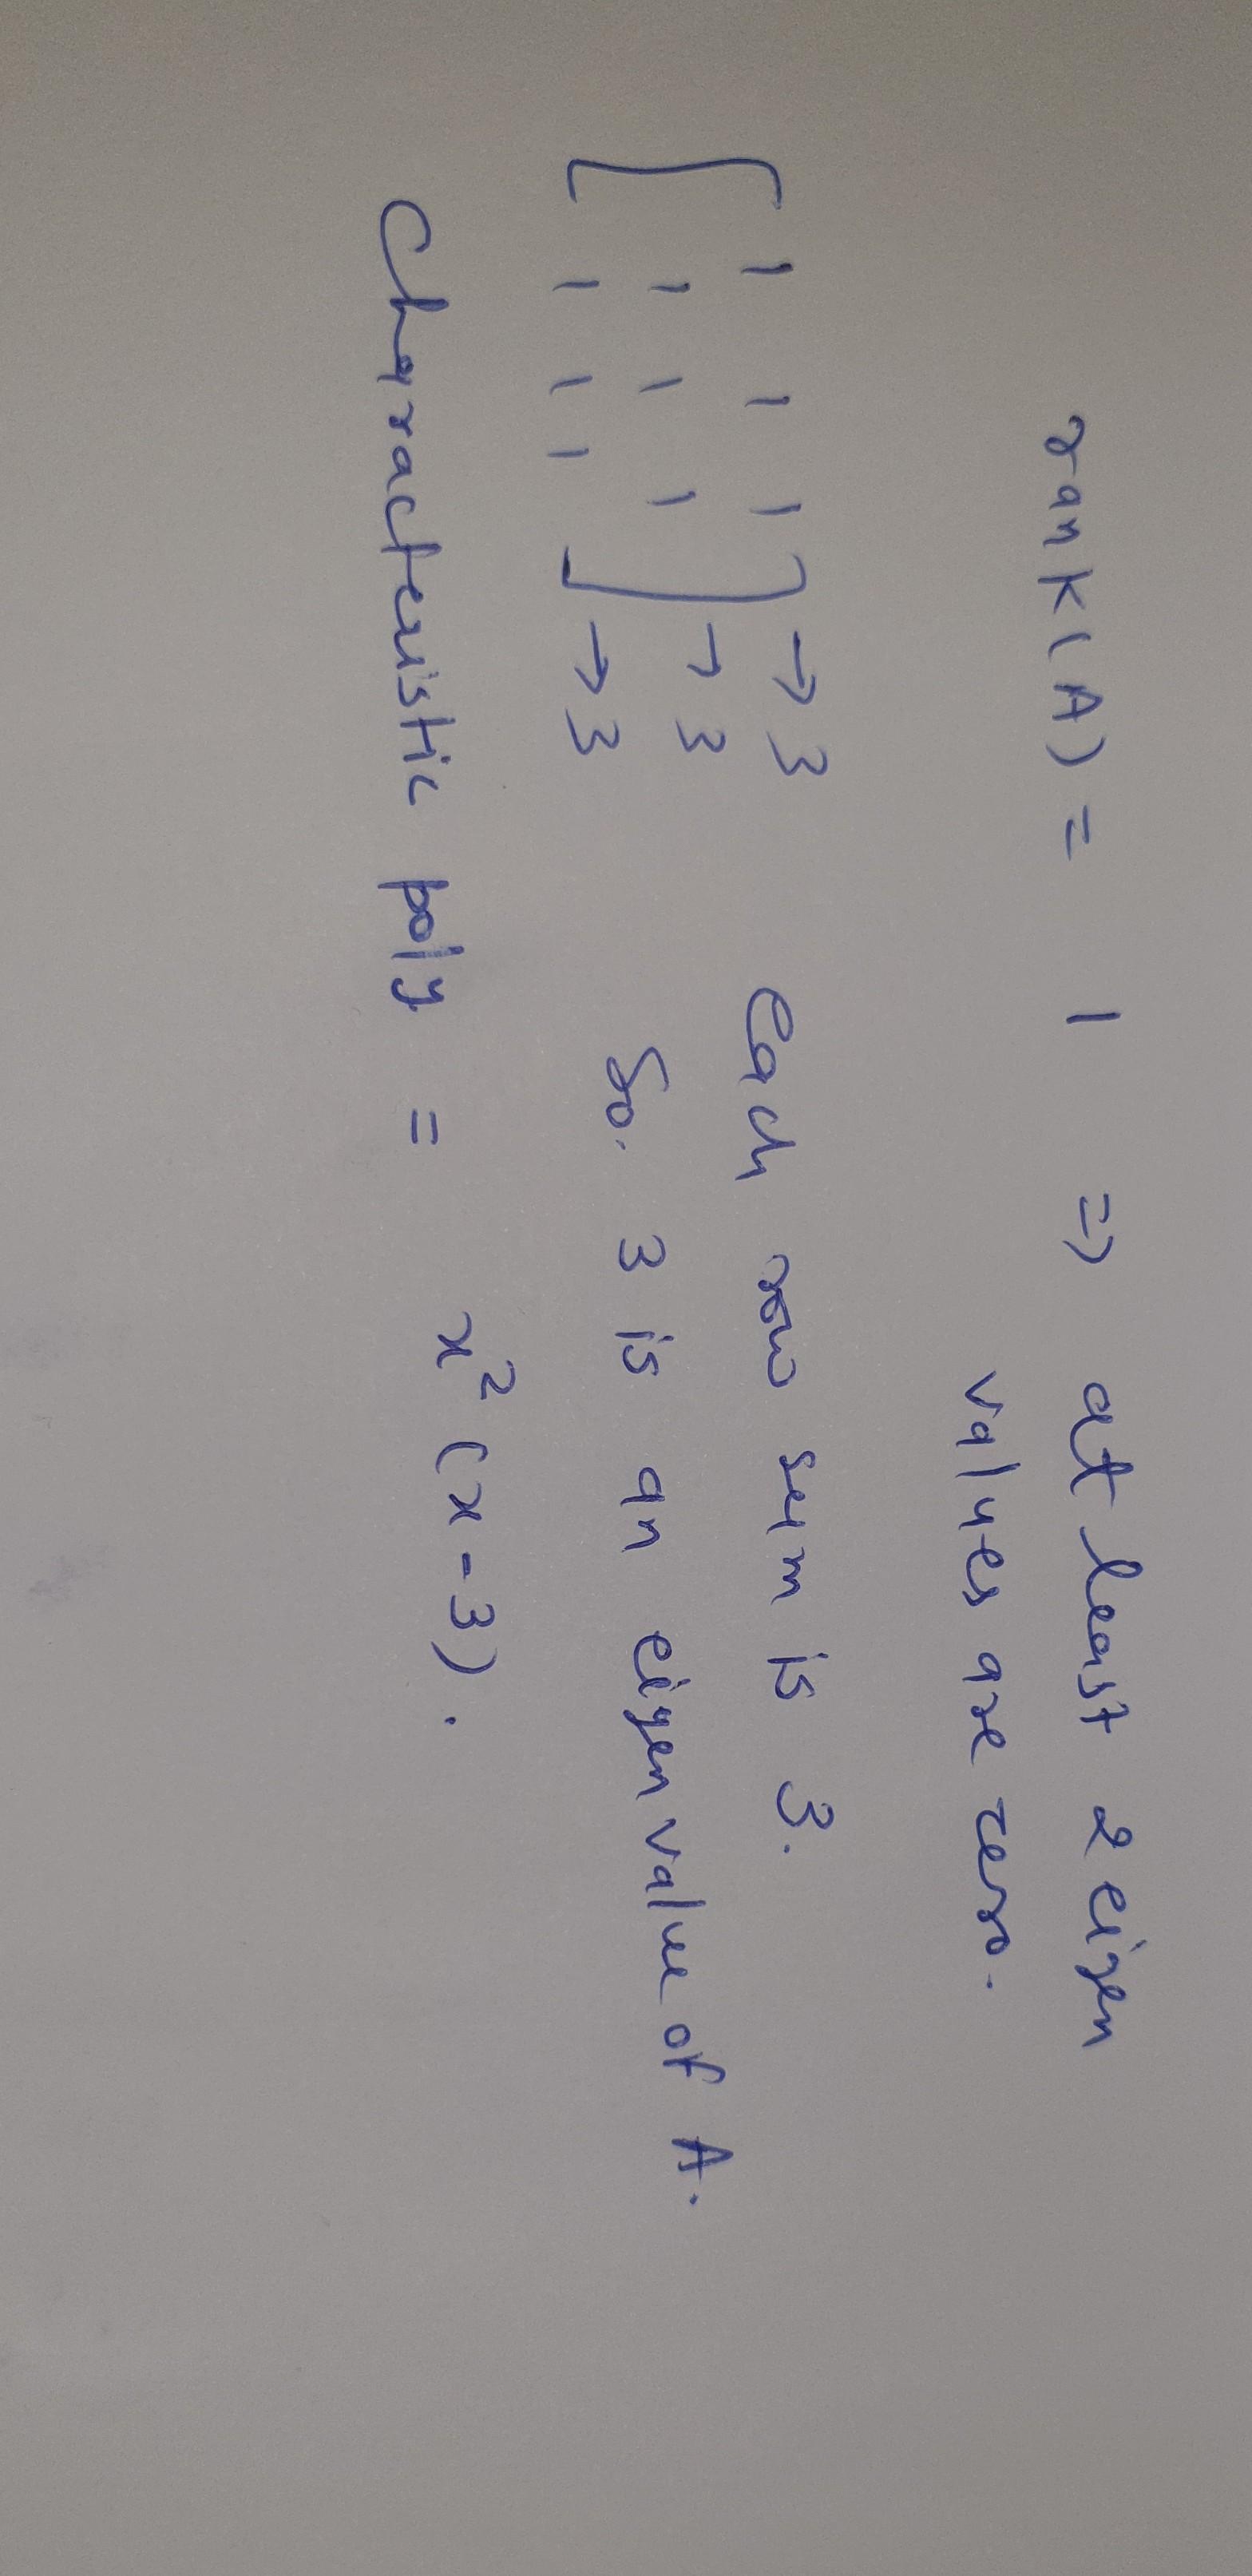 rank(A) = 1 => at least 2 eigen
values are zero.
[ 1 1 1 → 3
1 1 1 → 3 each row sum is 3.
1 1 1 ] → 3 So. 3 is an eigen value of A.
Characteristic poly = x² (x-3).